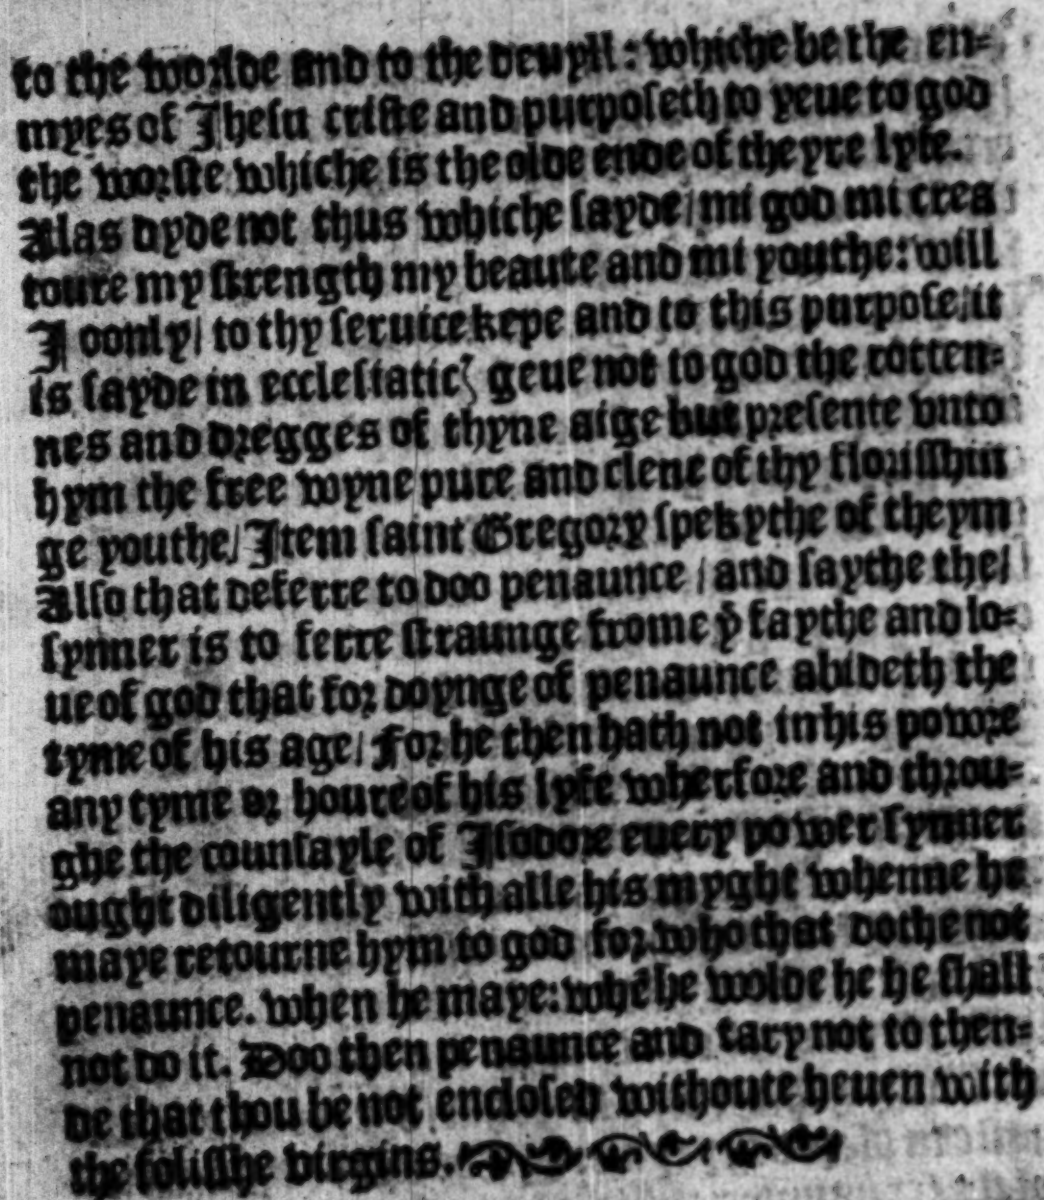 to the worlde and to the deuyll: whiche be the en=
myes of Jhesu criste and purposeth to yeue to god
the worste whiche is the olde ende of theyre lyfe.
Alas dyde not thus whiche sayde/mi god mi crea
toure my strength my beaute and mi youthe: will
I oonly/ to thy seruice kepe and to this purpose/it
is sayde in ecclesiatic⁊ geue not to god the rotten=
nes and dregges of thyne aige but presente vnto
hym the free wyne pure and clene of thy florisshin
ge youthe/ Item saint Gregory spekythe of theym
Also that deferre to doo penaunce /and saythe the/
synner is to ferre straunge frome yͤ faythe and lo=
ue of god that for doynge of penaunce abideth the
tyme of his age/ for he then hath not in his powre
any tyme or houre of his lyfe wherfore and throu=
ghe the counsayle of Isodore euery power synner
ought diligently with alle his myght whenne he
maye retourne hym to god for who that dothe not
penaunce. when he maye: whē he wolde he he shall
not do it. Doo then penaunce and tary not to then=
de that thou be not enclosed withoute heuen with
the folisshe virgins.